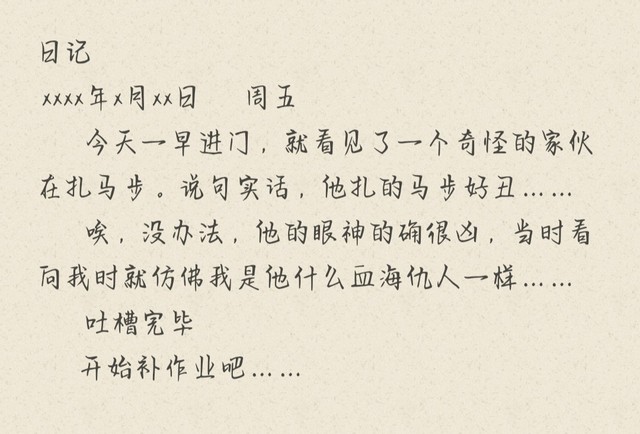 日记
xxxx年x月xx日 周五
今天一早进门，就看见了一个奇怪的家伙
在扎马步。说句实话，他扎的马步好丑……
唉，没办法，他的眼神的确很凶，当时看
向我时就仿佛我是他什么血海仇人一样……
吐槽完毕
开始补作业吧……